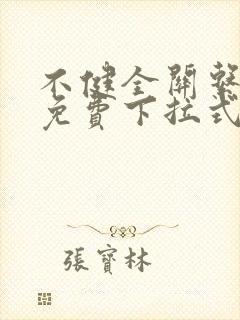 不健全關繫
免費下拉式
張寶林